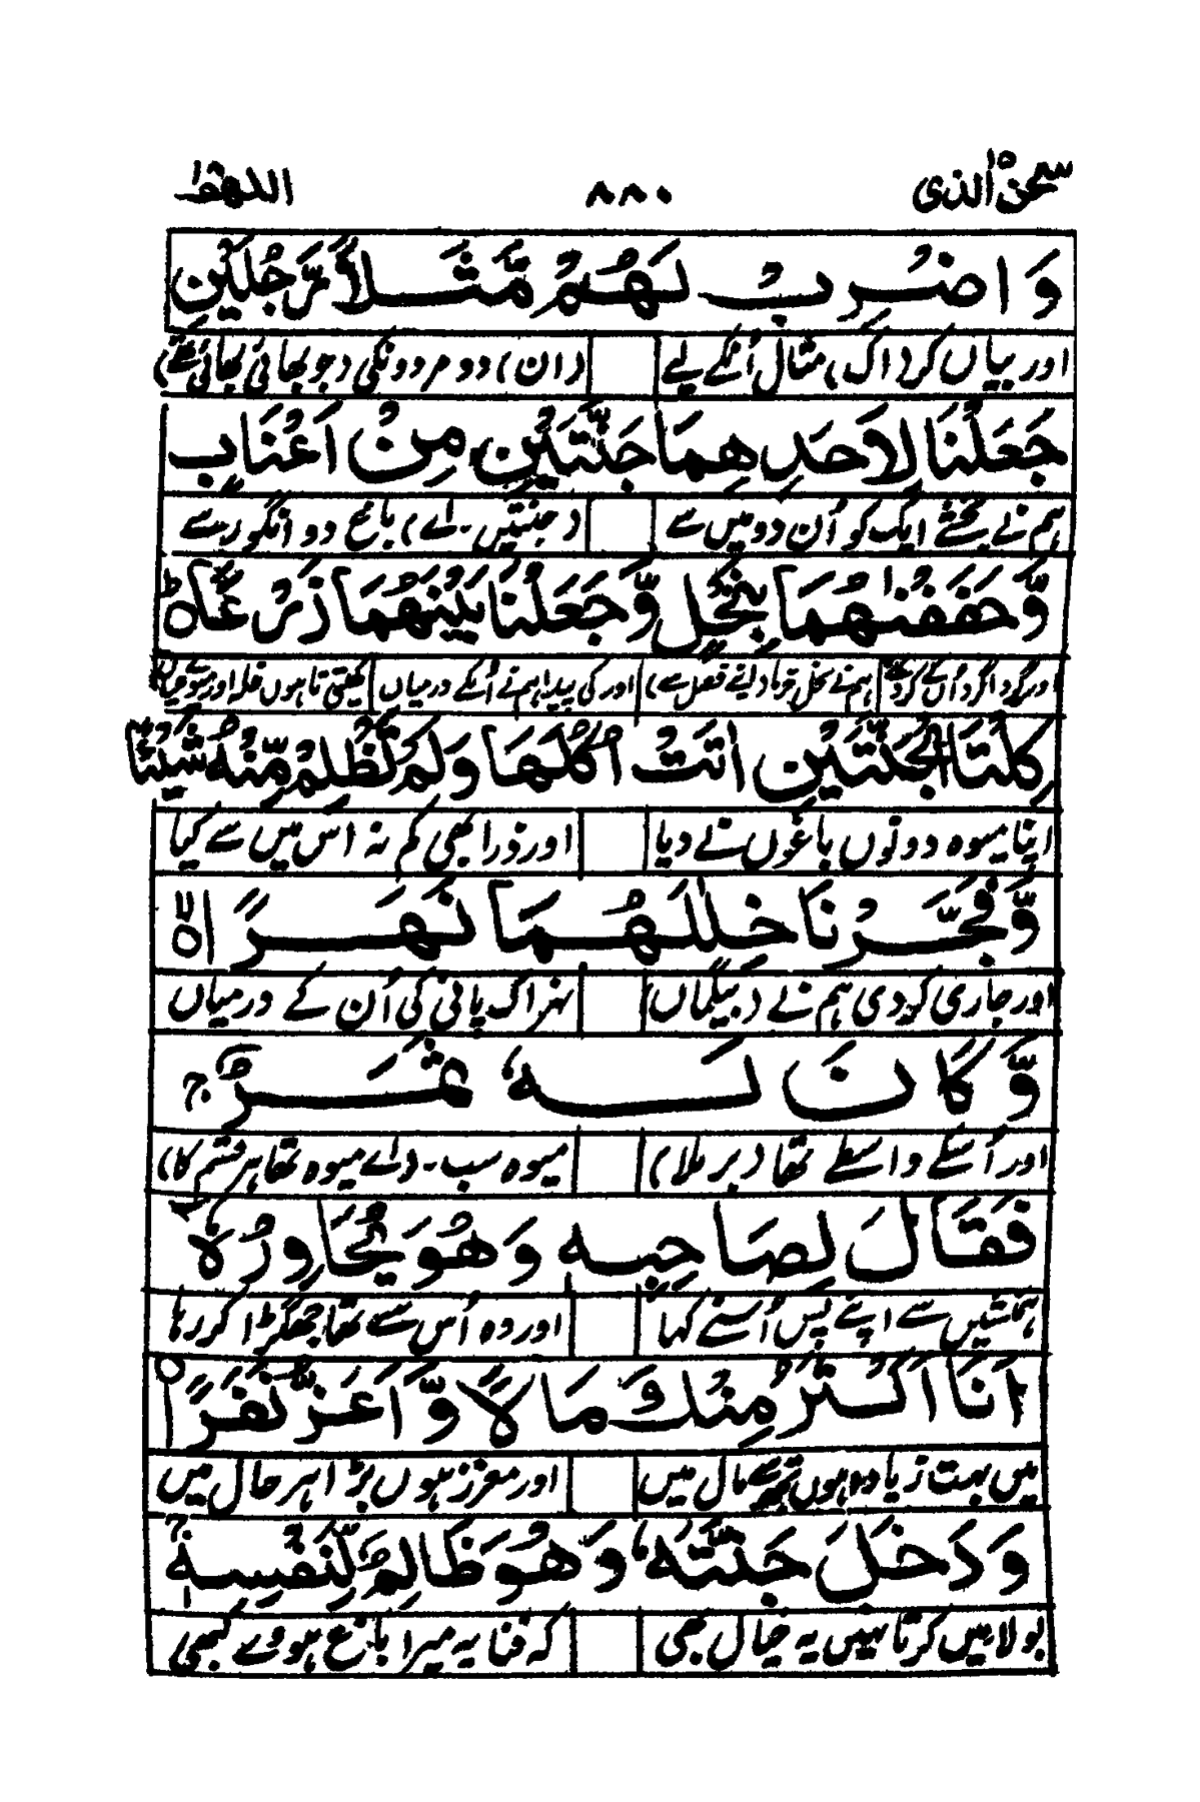 سبحٰن الذی ۸۸۰ الکھف
وَاضْرِبْ لَهُمْ مَّثَلًا رَّجُلَيْنِ
اور بیاں کر (اک) مثال اُنکے لیے (ان) دو مردونکی (جو بھائی بھائی تھے)
جَعَلْنَا لِاَحَدِهِمَا جَنَّتَيْنِ مِنْ اَعْنَابٍ
ہم نے بخشے ایک کو اُن دو میں سے (جنتیں۔اے) باغ دو انگور سے
وَّحَفَفْنٰهُمَا بِنَخْلٍ وَّجَعَلْنَا بَيْنَهُمَا زَرْعًا ۝ؕ
اور گردا گرد اُن کے کردئے ہم نے نخل خرما (اپنے فضل سے) اور کی پیدا ہم نے اُنکے درمیاں کھیتی تا ہوں غلہ اور میوے
كِلْتَا الْجَنَّتَيْنِ اٰتَتْ اُكُلَهَا وَلَمْ تَظْلِمْ مِّنْهُ شَيْـًٔا
اپنا میوہ دونوں باغوں نے دیا اور ذرا بھی کم نہ اس میں سے کیا
وَّفَجَّرْنَا خِلٰلَهُمَا نَهَرًا ۝ۙ
اور جاری کردی ہم نے (بیگماں) نہر اک پانی کی اُن کے درمیاں
وَّكَانَ لَهٗ ثَمَرٌ ۚ
اور اُسکے واسطے تھا (برملا) میوہ سب۔(اے میوہ تھا ہر قسم کا)
فَقَالَ لِصَاحِبِهٖ وَهُوَ يُحَاوِرُهٗۤ
ہمنشیں سے اپنے پس اُسنے کہا اور وہ اُس سے تھا جھگڑا کر رہا
اَنَا اَكْثَرُ مِنْكَ مَالًا وَّاَعَزُّ نَفَرًا ۝
میں بہت زیادہ ہوں تجھ سے مال میں اور معزز ہوں بڑا ہر حال میں
وَدَخَلَ جَنَّتَهٗ وَهُوَ ظَالِمٌ لِّنَفْسِهٖ ۚ
بولا میں کرتا نہیں یہ خیال بھی کہ فنا یہ میرا باغ ہووے کبھی